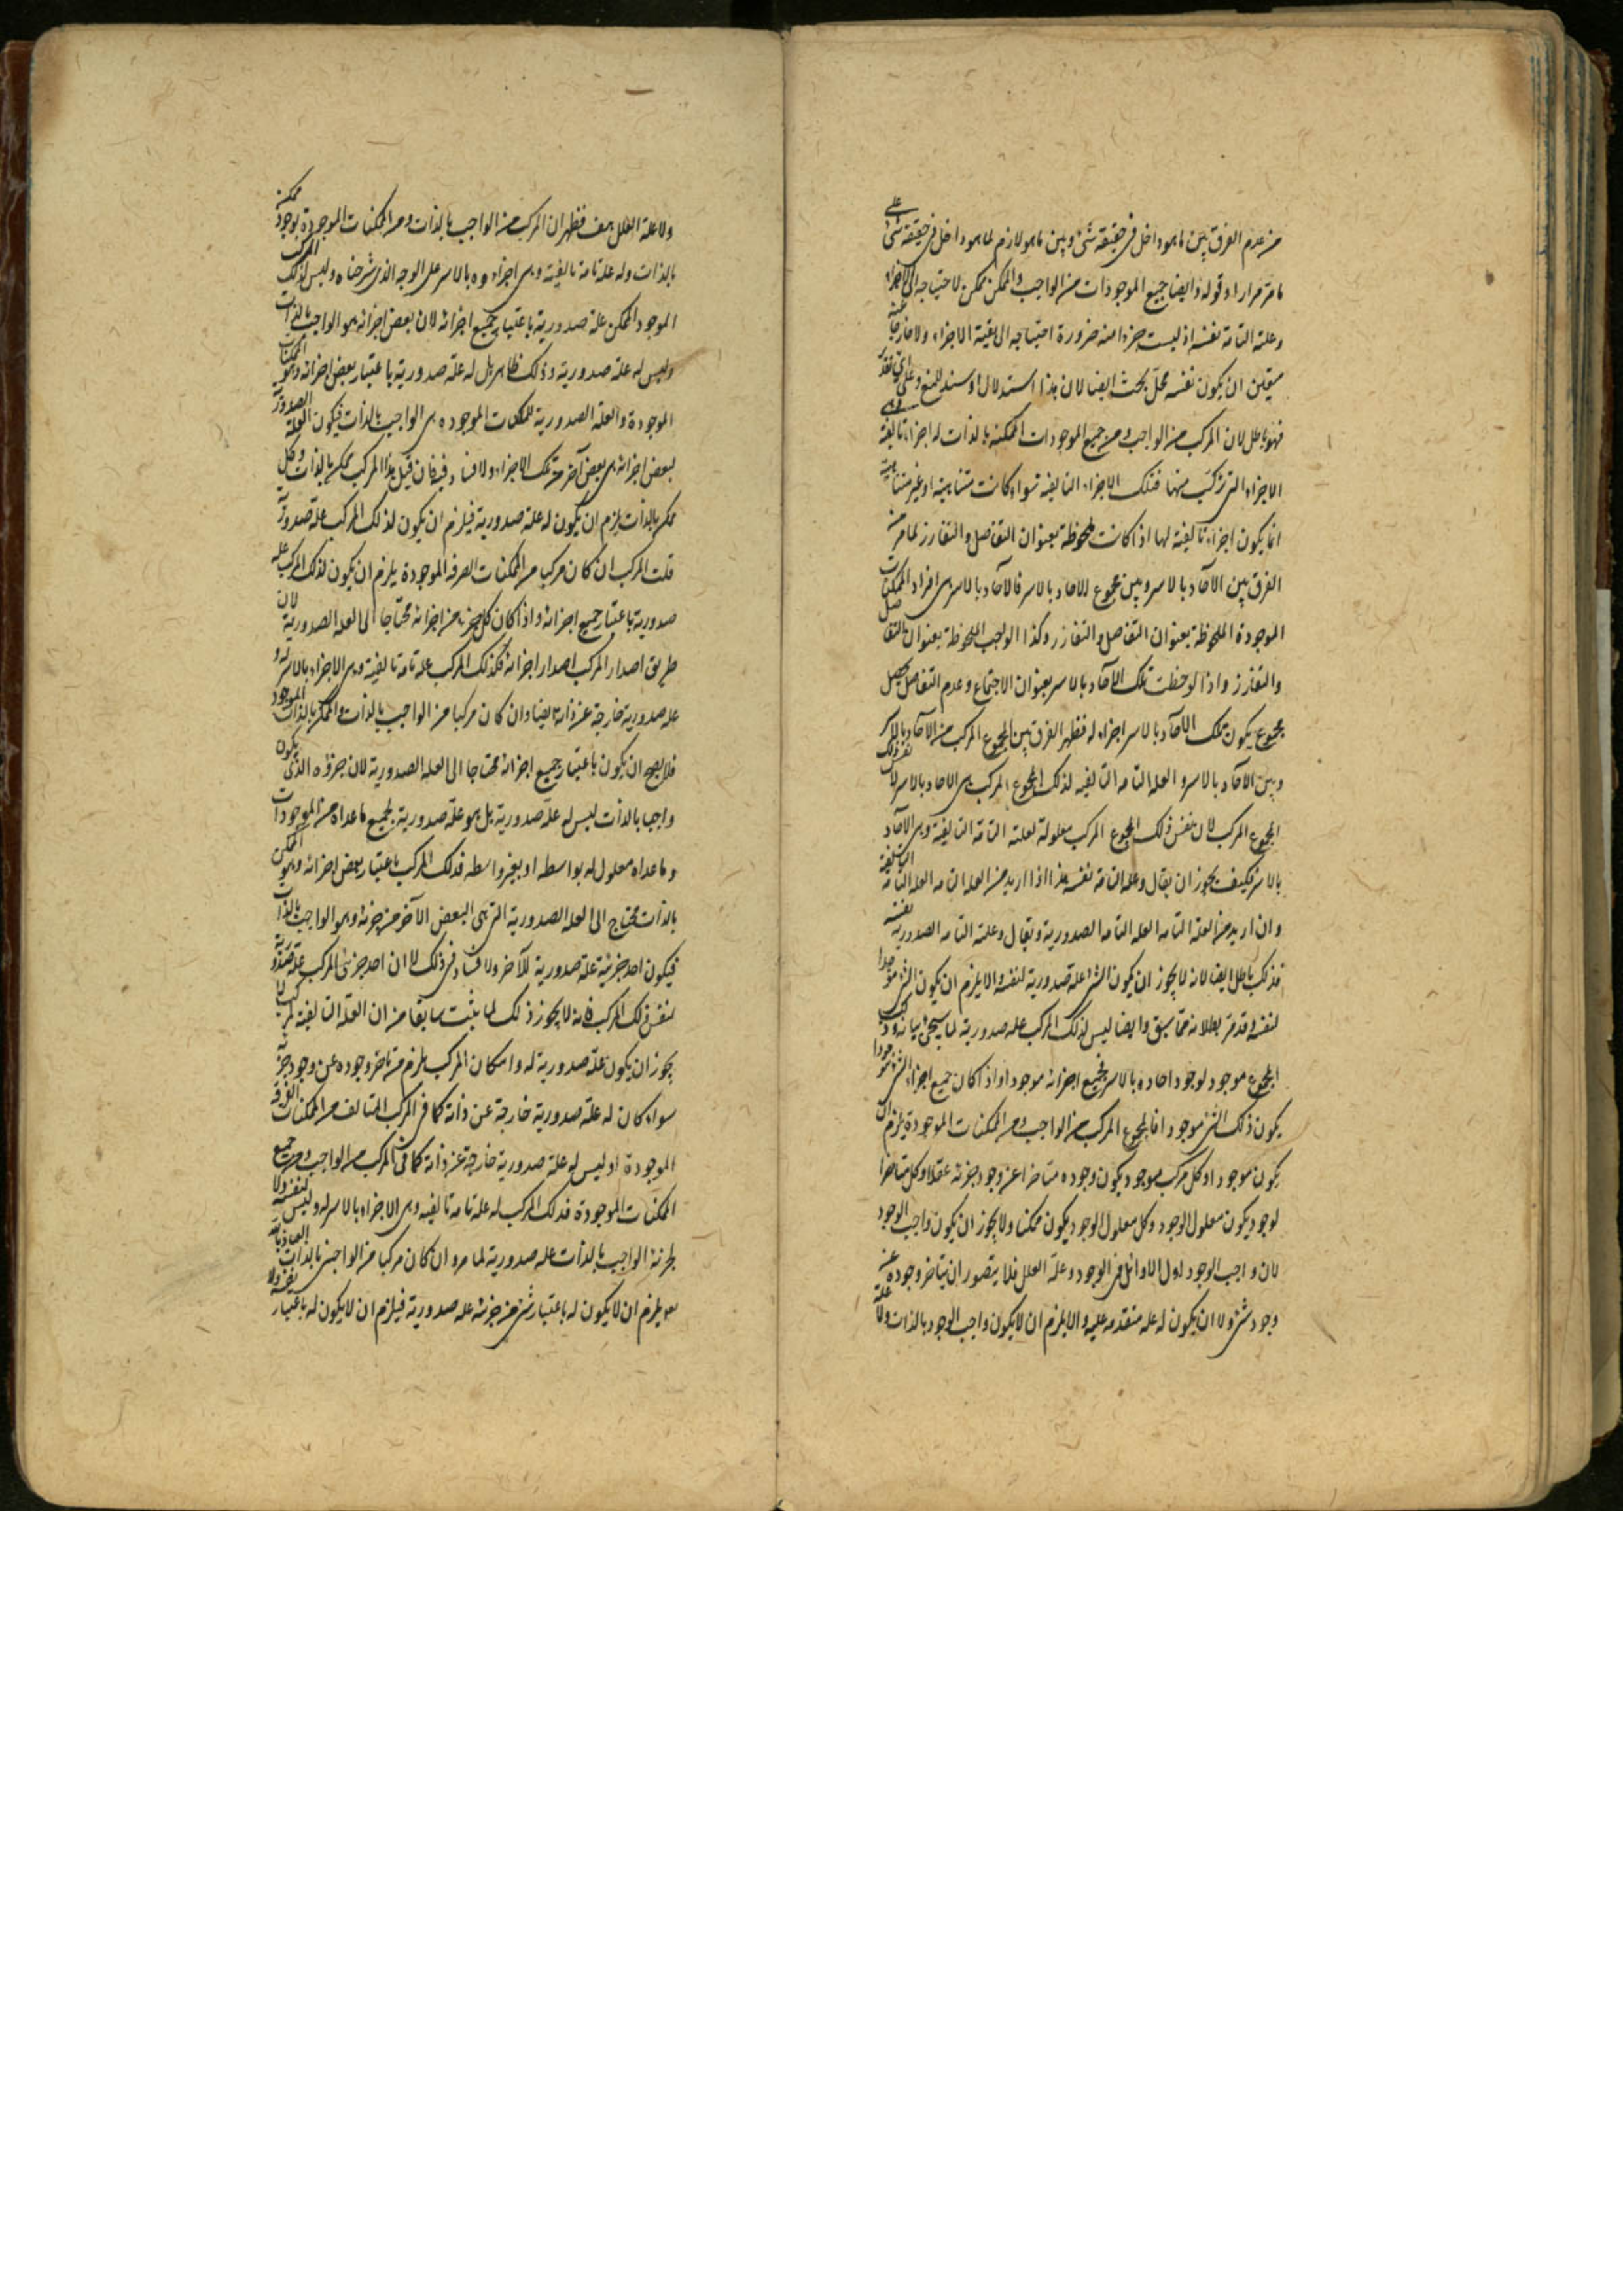 من عدم الفرق بين ما هو داخل فى حقيقة شئ وبين ما هو لازم لما هو داخل فى حقيقة شئ على
ما مر مرارا وقوله وايضا جميع الموجودات من الواجب والممكن ممكن لاحتياجه الى الاجزاء
وعلته التامة نفسه اذ ليست جزءا منه ضرورة احتياجه الى بقية الاجزاء ولا خارجا عنه
فتعين ان يكون نفسه محل بحث ايضا لان هذا استدلال او سند للمنع وعلى اى تقدير
فهو باطل لان المركب من الواجب ومن جميع الموجودات الممكنة بالذات له اجزاء تاليفية وهى
الاجزاء التى تركب منها فتلك الاجزاء التاليفية سواء كانت متناهية او غير متناهية
انما يكون اجزاء تاليفية لها اذا كانت ملحوظة بعنوان التفاصل والتفارز لما مر من
الفرق بين الآحاد بالاسر وبين مجموع الآحاد بالاسر فالآحاد بالاسر هى افراد الممكنات
الموجودة الملحوظة بعنوان التفاصل والتفارز وكذا الواجب الملحوظة بعنوان التفاصل
والتفارز واذا لوحظت تلك الآحاد بالاسر بعنوان الاجتماع وعدم التفاصل يحصل
مجموع يكون تلك الآحاد بالاسر اجزاء له فظهر الفرق بين المجموع المركب من الآحاد بالاسر
وبين الآحاد بالاسر والعلة التامة التاليفية لذلك المجموع المركب هى الآحاد بالاسر لا نفس ذلك
المجموع المركب لان نفس ذلك المجموع المركب معلولة لعلته التامة التاليفية وهى الآحاد
بالاسر فكيف يجوز ان يقال وعلته التامة نفسه هذا اذا اريد من العلة التامة العلة التامة التاليفية
وان اريد من العلة التامة العلة التامة الصدورية ويقال وعلته التامة الصدورية نفسه
فذلك باطل ايضا لانه لا يجوز ان يكون الشئ علة صدورية لنفسه والا يلزم ان يكون الشئ موجدا
لنفسه وقد مر بطلانه مما سبق وايضا ليس لذلك المركب علة صدورية لما سيجئ بيانه وذلك
المجموع موجود لوجود آحاده بالاسر فجميع اجزائه موجودا واذا كان جميع اجزاء الشئ موجودا
يكون ذلك الشئ موجودا فالمجموع المركب من الواجب ومن الممكنات الموجودة يلزم ان
يكون موجودا وكل مركب موجود يكون وجوده متاخرا عن وجود جزئه عقلا وكل متاخر
لوجود يكون معلول الوجود وكل معلول الوجود يكون ممكنا ولا يجوز ان يكون واجب الوجود
لان واجب الوجود اول الاوائل فى الوجود وعلة العلل فلا يتصور ان يتاخر وجوده عن
وجود شئ ولا ان يكون له علة متقدمة عليه والا يلزم ان لا يكون واجب الوجود بالذات ولا علة
ولا علة العلل هف فظهر ان المركب من الواجب بالذات ومن الممكنات الموجودة بوجود ممكن
بالذات وله علة تامة تاليفية وهى اجزاءه بالاسر على الوجه الذى شرحناه وليس لذلك المركب
الموجود الممكن علة صدورية باعتبار جميع اجزائه لان بعض اجزائه هو الواجب بالذات
وليس له علة صدورية وذلك ظاهر بل له علة صدورية باعتبار بعض اجزائه وهو الممكنات
الموجودة والعلة الصدورية للممكنات الموجودة هى الواجب بالذات فيكون العلة الصدورية
لبعض اجزائه هى بعض آخر من تلك الاجزاء ولا فساد فيه فان قيل هذا المركب ممكن بالذات وكل
ممكن بالذات يلزم ان يكون له علة صدورية فيلزم ان يكون لذلك المركب علة صدورية
قلت المركب ان كان مركبا من الممكنات الصرفة الموجودة يلزم ان يكون لذلك المركب علة
صدورية باعتبار جميع اجزائه واذا كان كل جزء من اجزائه محتاجا الى العلة الصدورية لان
طريق اصدار المركب اصدار اجزائه فكذلك المركب علة تامة تاليفية وهى الاجزاء بالاسر له و
علة صدورية خارجة عن ذاته ايضا وان كان مركبا من الواجب بالذات والممكن بالذات الموجود
فلا يصح ان يكون باعتبار جميع اجزائه محتاجا الى العلة الصدورية لان جزؤه الذى يكون
واجبا بالذات ليس له علة صدورية بل هو علة صدورية لجميع ما عداه من الموجودات
وما عداه معلول له بواسطة او بغير واسطة فذلك المركب باعتبار بعض اجزائه وهو الممكن
بالذات محتاج الى العلة الصدورية التى هى البعض الآخر من جزئه وهو الواجب بالذات
فيكون احد جزئيه علة صدورية للآخر ولا فساد فى ذلك لا ان احد جزئى المركب علة صدورية
لنفس ذلك المركب فانه لا يجوز ذلك لما يثبت سابقا من ان العلة التاليفية لمركب لا
يجوز ان يكون علة صدورية له وامكان المركب يلزم من تاخر وجوده عن وجود جزئه
سواء كان له علة صدورية خارجة عن ذاته كما فى المركب المتالف من الممكنات الصرفة
الموجودة او ليس له علة صدورية خارجة عن ذاته كما فى المركب من الواجب ومن جميع
الممكنات الموجودة فذلك المركب له علة تامة تاليفية وهى الاجزاء بالاسر له وليس لنفسه ولا
لجزئه الواجب بالذات علة صدورية لما مر وان كان مركبا من الواجبين بالذات العياذ بالله
يلزم ان لا يكون له باعتبار شئ من جزئيه علة صدورية فيلزم ان لا يكون له باعتبار نفسه ولا